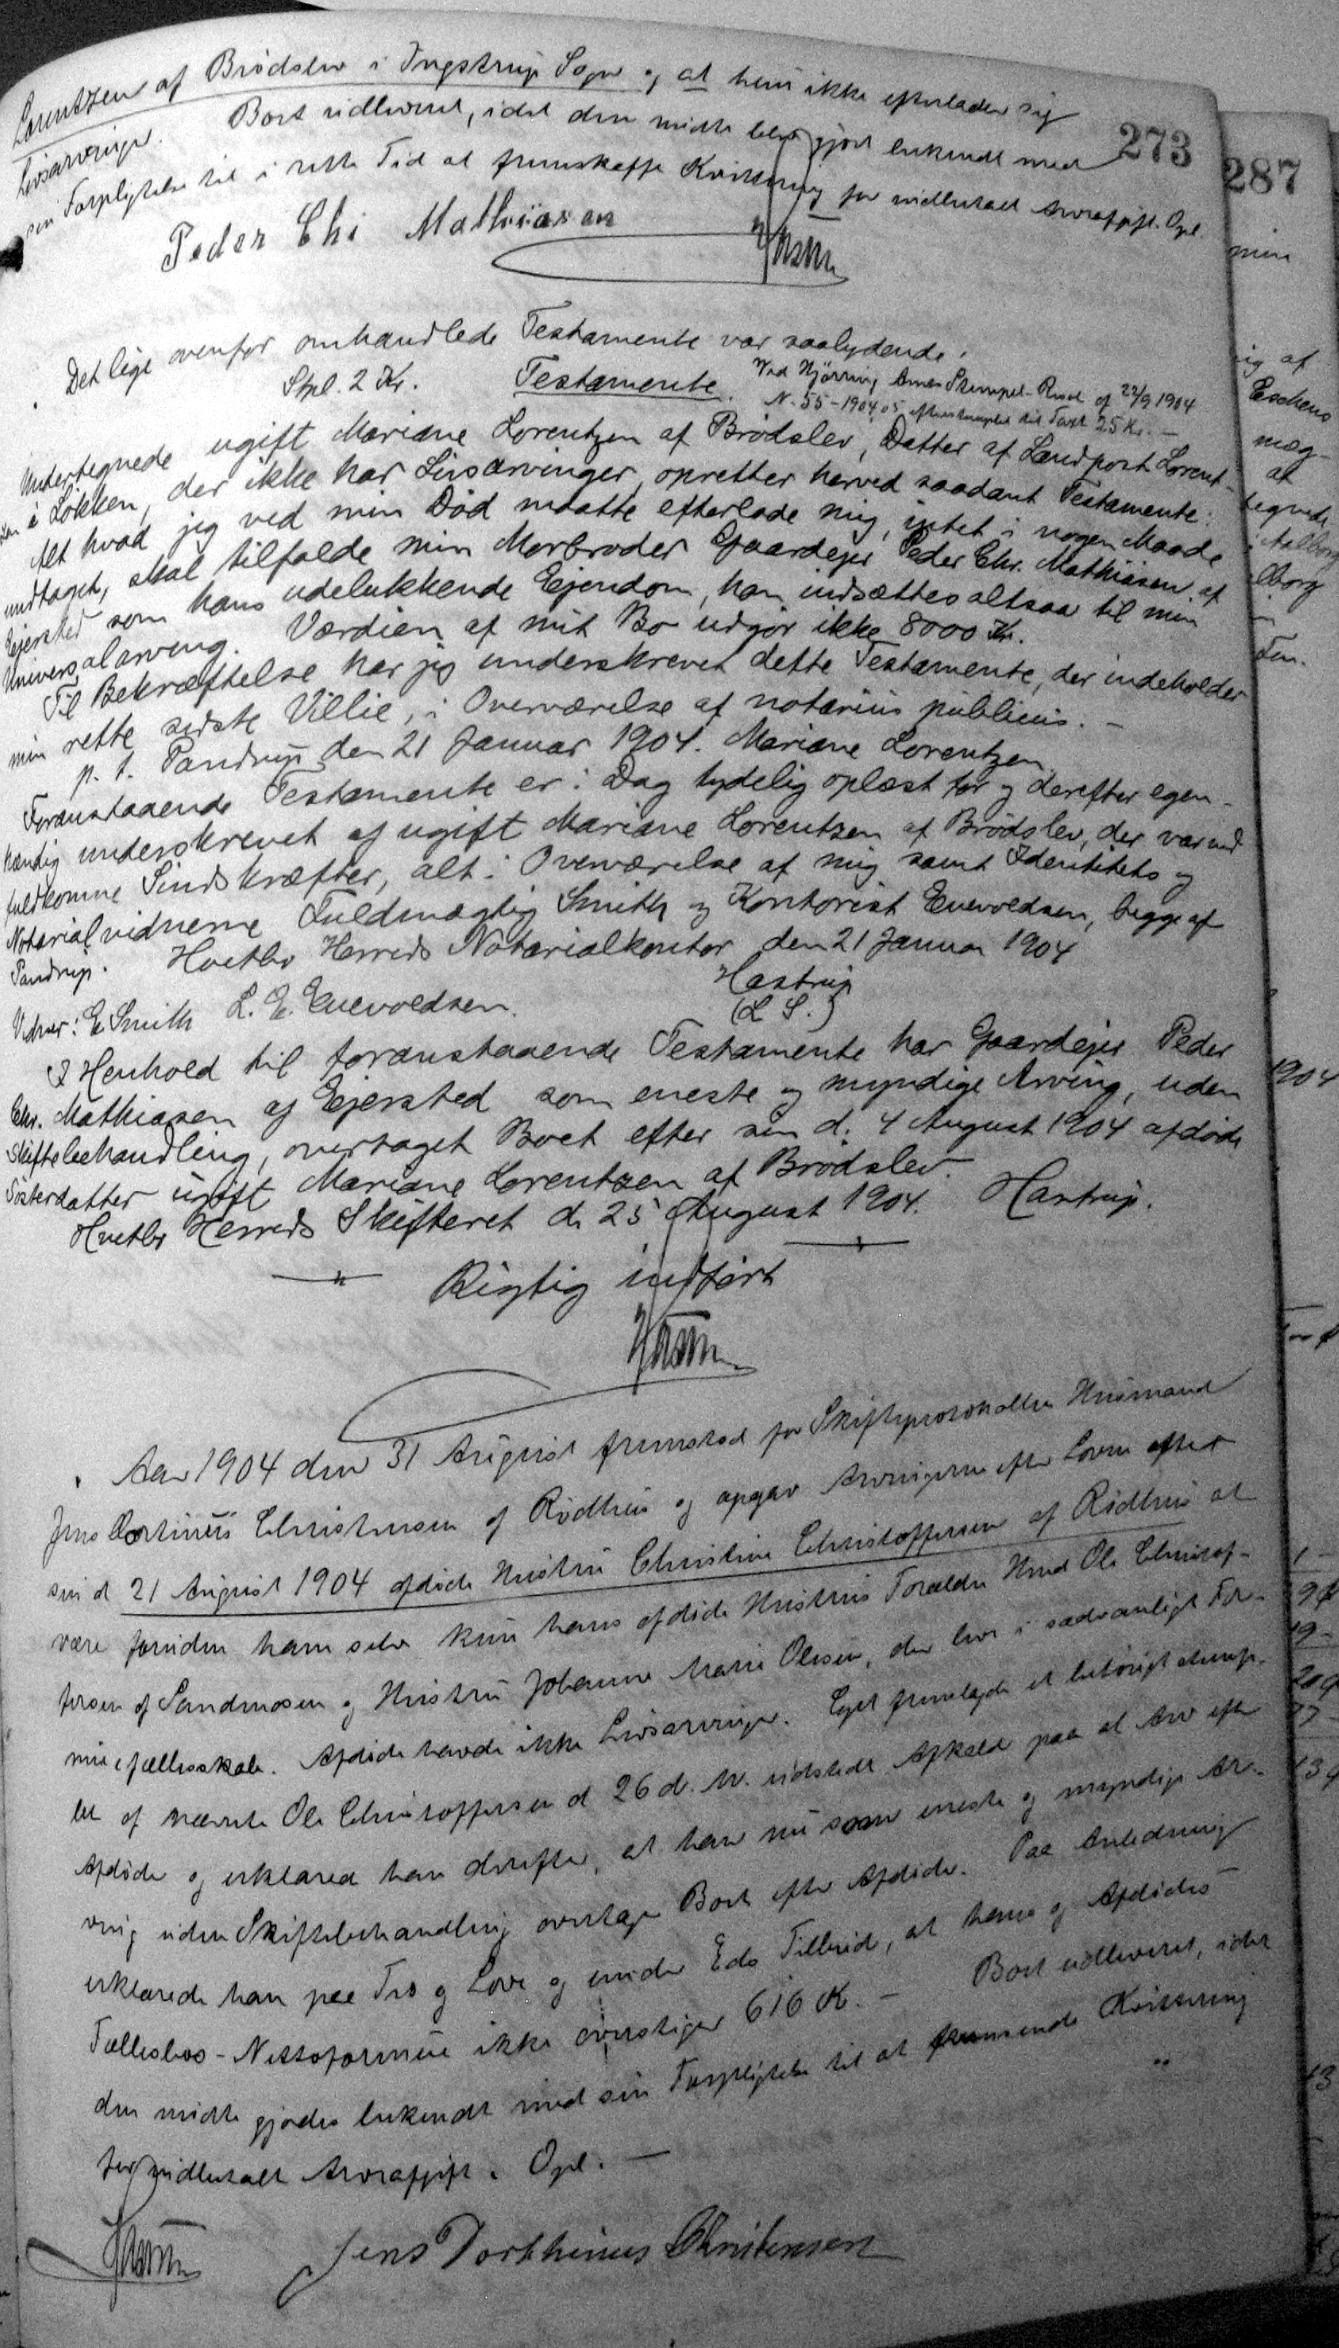 Lorentzen af Brødslev i Ingstrup Sogn og at hun ikke efterlader sig
Livsarvinger. Boet udleveret, idet den mødte blev gjort bekendt med
sin Forpligtelse til i rette Tid at fremskaffe Kvittering for indbetalt Arveafgift. Opl.
273
287
Peder Chr Mathiasen
Hastrup
Det lige ovenfor omhandlede Testamente var saalydende:
Stpl. 2 Kr. Testamente. Ved Hjörring Amts Stempel-Resol. af 22/9 1904
N. 55-1904/05 efterstemplet til Taxt 25 Kr. —
Undertegnede ugift Mariane Lorentzen af Brödslev, Datter af Landpost Lorent-
zen i Lökken, der ikke har Livsarvinger, opretter herved saadant Testamente:
Alt hvad jeg ved min Död maatte efterlade mig, intet i nogen Maade
undtaget, skal tilfalde min Morbroder Gaardejer Peder Chr. Mathiasen af
Ejersted som hans udelukkende Ejendom, han indsættes altsaa til min
Universalarving. Værdien af mit Bo udgjör ikke 8000 Kr.
Til Bekræftelse har jeg underskrevet dette Testamente, der indeholder
min rette sidste Villie, i Overværelse af notarius publicus. —
p. t. Pandrup den 21 Januar 1904. Mariane Lorentzen
Foranstaaende Testamente er i Dag tydelig oplæst for og derefter egen-
hændig underskrevet af ugift Mariane Lorentzen af Brödslev, der var ved
fuldkomne Sindskræfter, alt i Overværelse af mig samt Identitets og
Notarialvidnerne Fuldmægtig Smith og Kontorist Enevoldsen, begge af
Pandrup. Hvetbo Herreds Notarialkontor den 21 Januar 1904
Hastrup
(L S.)
Vidner: E Smith L. E. Enevoldsen.
I Henhold til foranstaaende Testamente har Gaardejer Peder
Chr. Mathiasen af Ejersted som eneste og myndige Arving, uden
Skiftebehandling, overtaget Boet efter sin d. 4 August 1904 afdöde
Sösterdatter ugift Mariane Lorentzen af Brödslev.
Hvetbo Herreds Skifteret d. 25 August 1904. Hastrup.
Rigtig indført
Hastrup
Aar 1904 den 31 August fremstod for Skifteprotokollen Husmand
Jens Dortinus Christensen af Rødhus og opgav Arvingerne efter Loven efter
sin d 21 August 1904 afdøde Hustru Christine Christoffersen af Rødhus at
være foruden ham selv kun hans afdøde Hustrus Forældre Hmd Ole Christof-
fersen af Sandmosen og Hustru Johanne Marie Olesen, der lever i sædvanligt For-
muefællesskab. Afdøde havde ikke Livsarvinger. Comp. fremlagde et behørigt stemp-
let af nævnte Ole Christoffersen d 26 d. M. udstedt Afkald paa al Arv efter
Afdøde og erklæred han derefter, at han nu som eneste og myndige Ar-
ving uden Skiftebehandling overtager Boet efter Afdøde. Paa Anledning
erklærede han paa Tro og Love og under Eds Tilbud, at hans og Afdødes
Fællesbos-Nettoformue ikke overstiger 616 Kr. — Boet udleveret, idet
den mødte gjordes bekendt med sin Forpligtelse til at fremsende Kvittering
for indbetalt Arveafgift. Opl. —
Hastrup Jens Dorthinus Christensen